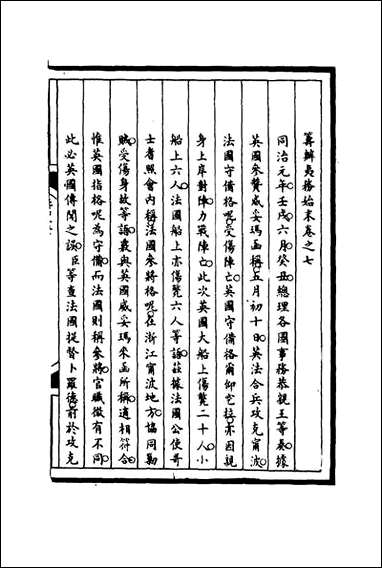 籌辦夷務始末卷之七
同治元年壬戌六月癸丑總理各國事務恭親王等奏據
英國參贊威妥瑪函稱五月初十日英法合兵攻克甯波
法國守備格呢受傷陣亡英國守備格爾仰乞拉亦因親
身上岸對陣力戰陣亡此次英國大船上傷斃二十人小
船上六人法國船上亦傷斃六人等語茲據法國公使哥
士耆照會內稱法國參將格呢在浙江甯波地方協同勦
賊受傷身故等語覈與英國威妥瑪來函所稱適相符合
惟英國指格呢為守備而法國則稱參將官職微有不同
此必英國傳聞之誤臣等查法國提督卜羅德前於攻克